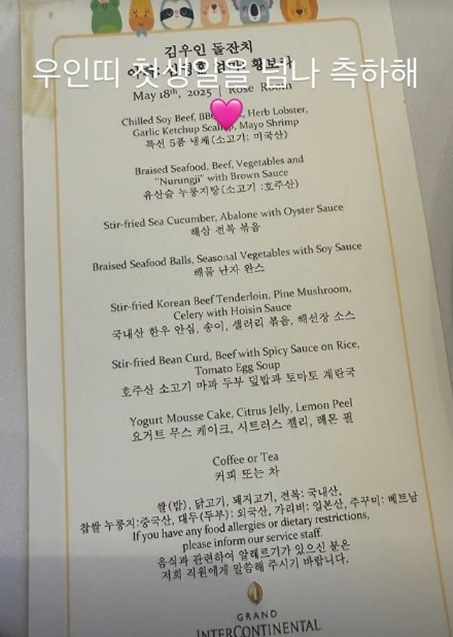 김우인 돌잔치
우인띠 첫생일을 넘나 축하해
황보라
May 18th, 2025 | Rose Room
Chilled Soy Beef, Herb Lobster,
Garlic Ketchup Scallop, Mayo Shrimp
특선 5품 냉채(소고기: 미국산)
Braised Seafood, Beef, Vegetables and
"Nurungji" with Brown Sauce
유산슬 누룽지탕(소고기 :호주산)
Stir-fried Sea Cucumber, Abalone with Oyster Sauce
해삼 전복 볶음
Braised Seafood Balls, Seasonal Vegetables with Soy Sauce
해물 난자 완스
Stir-fried Korean Beef Tenderloin, Pine Mushroom,
Celery with Hoisin Sauce
국내산 한우 안심, 송이, 샐러리 볶음, 해선장 소스
Stir-fried Bean Curd, Beef with Spicy Sauce on Rice,
Tomato Egg Soup
호주산 소고기 마파 두부 덮밥과 토마토 계란국
Yogurt Mousse Cake, Citrus Jelly, Lemon Peel
요거트 무스 케이크, 시트러스 젤리, 레몬 필
Coffee or Tea
커피 또는 차
쌀(밥), 닭고기, 돼지고기, 전복: 국내산,
찹쌀 누룽지:중국산, 대두(두부): 외국산, 가리비: 일본산, 주꾸미: 베트남
If you have any food allergies or dietary restrictions,
please inform our service staff.
음식과 관련하여 알레르기가 있으신 분은
저희 직원에게 말씀해 주시기 바랍니다.
GRAND
INTERCONTINENTAL